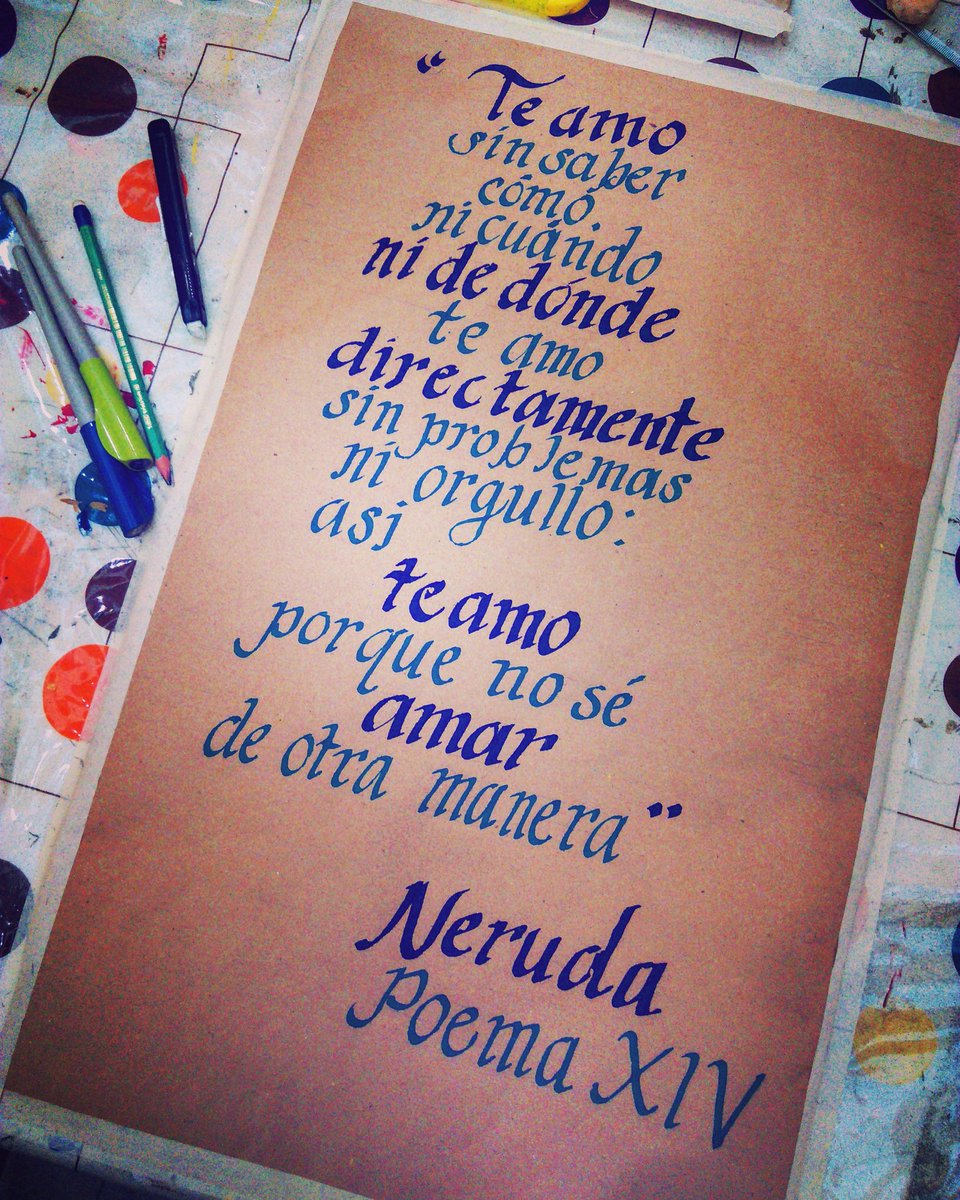 “Te amo
sin saber
cómo,
ni cuándo
ni de dónde
te amo
directamente
sin problemas
ni orgullo:
asj
te amo
porque no sé
amar
de otra manera”
Neruda
Poema XIV